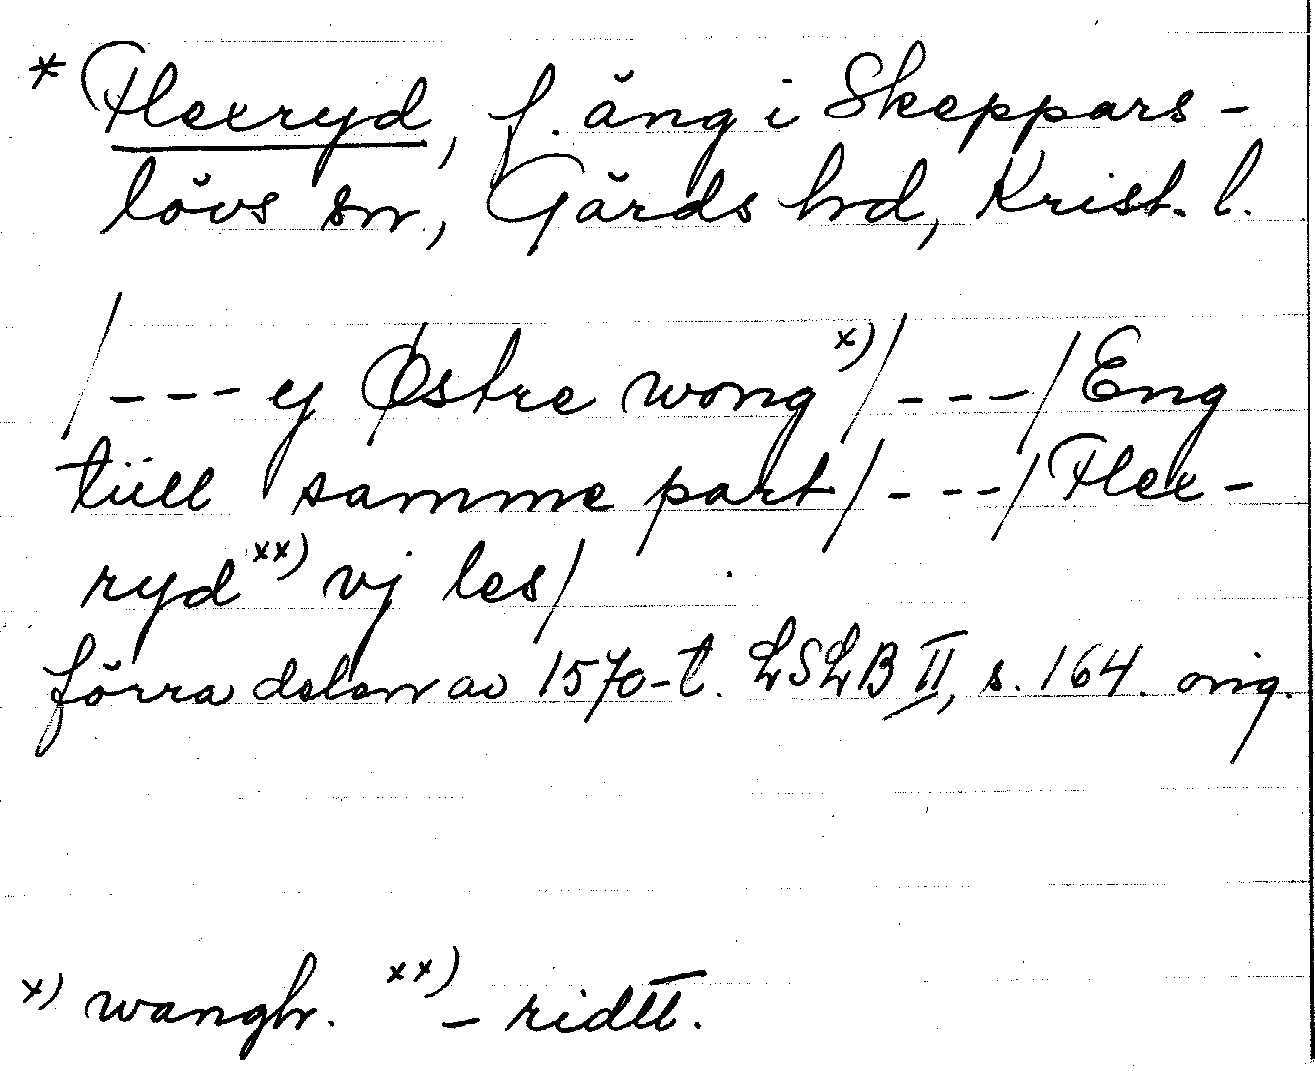 * Flexryd, f. äng i Skeppars-
lövs sn, Gärds hd, Krist. l.
/--- ej Østre wong x)/---/Eng
tiill samme part/---/Flex-
ryd xx) vj les/
förra delen av 1570-t. LSLB II, s. 164. orig.
x) wangh. xx) - ridtt.